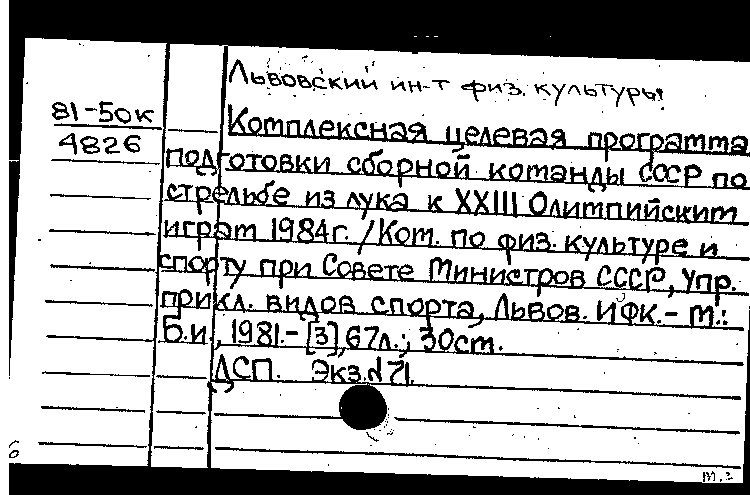 Львовский ин-т физ. культуры
81-50к
4826
Комплексная целевая программа
подготовки сборной команды СССР по
стрельбе из лука к XXIII Олимпийским
играм 1984г. /Ком. по физ. культуре и
спорту при Совете Министров СССР, Упр.
прикл. видов спорта, Львов. ИФК.- М.:
Б.и., 1981.- [3],67л.; 30см.
ДСП. Экз.№71.
6